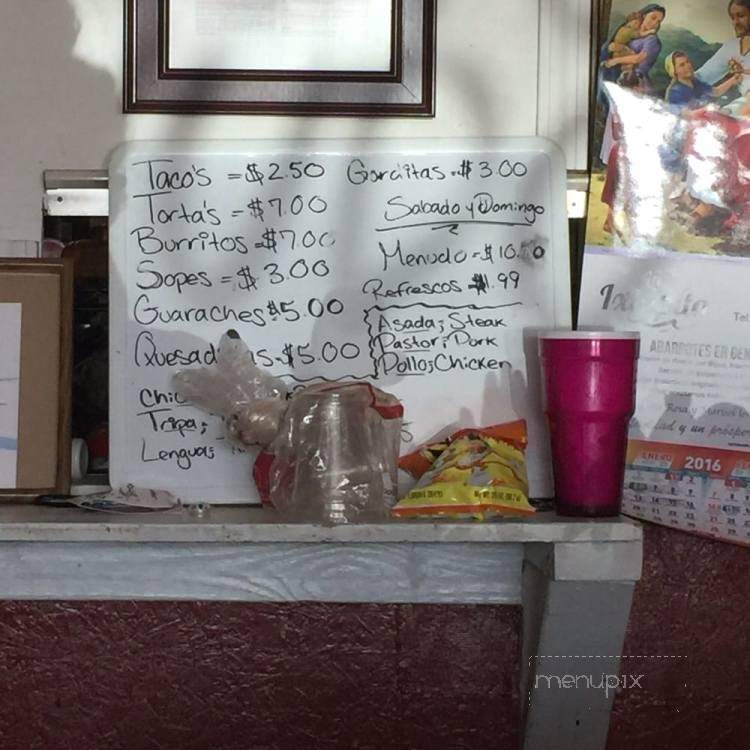 Taco's = $ 2.50
Torta's = $7.00
Burritos = $7.00
Sopes = $ 3.00
Guaraches $5.00
Quesad as. $5.00
Chic
Tripa;
Lengua;
Gorditas . $ 3.00
Sabado y Domingo
Menudo = $ 10.
Refrescos $1.99
Asada; Steak
Pastor; Pork
Pollo; Chicken
Tel.
ABARROTES EN GEN
ad y un prósper
ENERO 2016
menupix